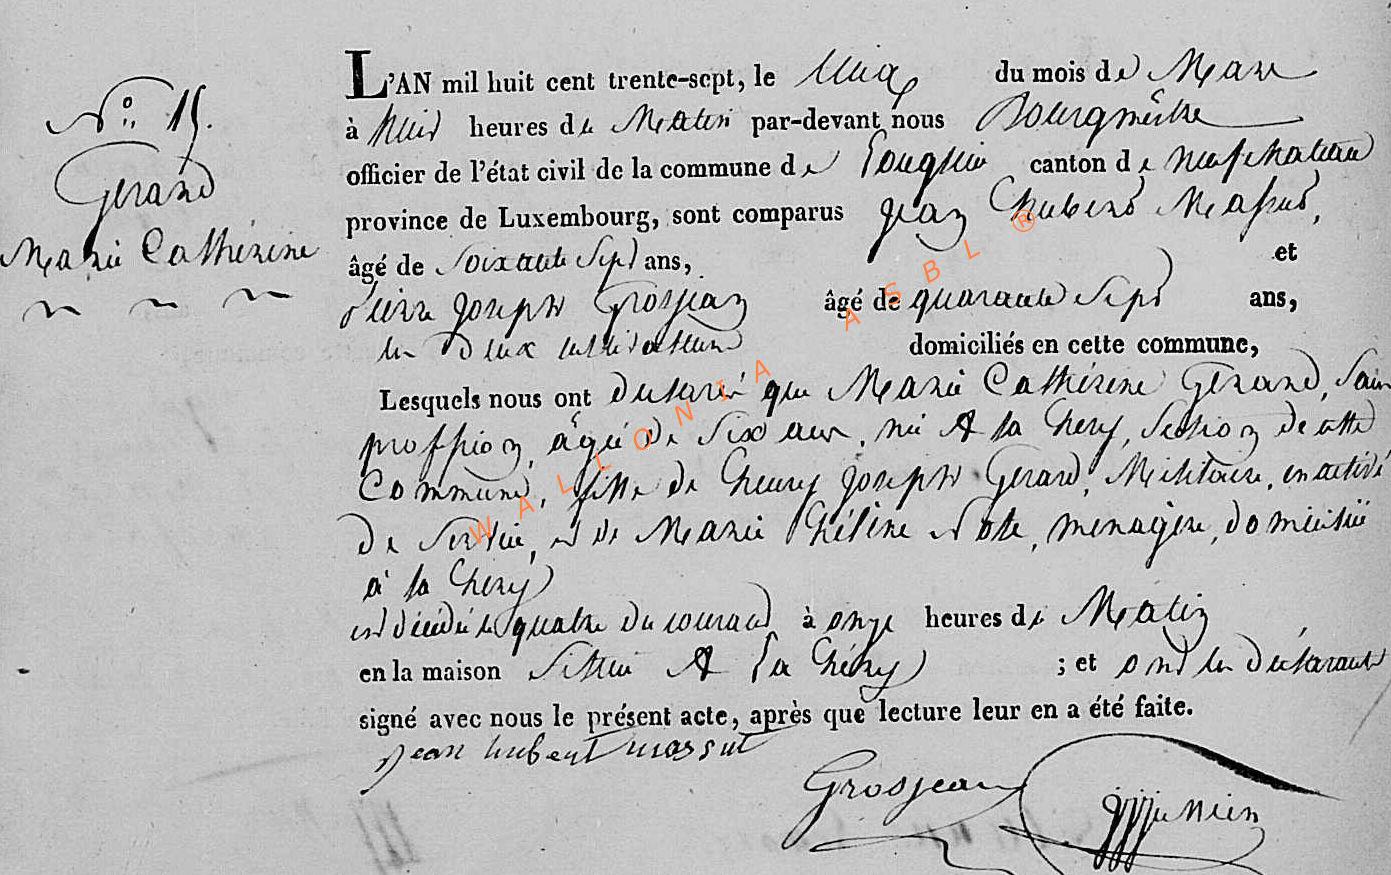 N.° 15.
Gerard
Marie Cathérine
L'AN mil huit cent trente-sept, le du mois de Mars
à huit heures du Matin par-devant nous Bourgmêstre
officier de l'état civil de la commune de canton de neufchateau
province de Luxembourg, sont comparus jean hubert Massut,
âgé de Soixante Sept ans, et
Pierre joseph Grosjean âgé de quarante Sept ans,
les deux cultivateurs domiciliés en cette commune,
Lesquels nous ont declaré que Marie Cathérine Gerard, Sans
proffsion, agée de Six ans, née A la Chery, Section de cette
Commune, fille de henry joseph Gerard, Militaire, en activité
de Service, et de Marie hélène, menagère, domiciliée
à la Chery
est décédée le quatre du courant à onze heures du Matin
en la maison Située A La Chéry ; et ont les déclarants
signé avec nous le présent acte, après que lecture leur en a été faite.
jean hubert massut
Grosjean
WALLONIA ASBL ®